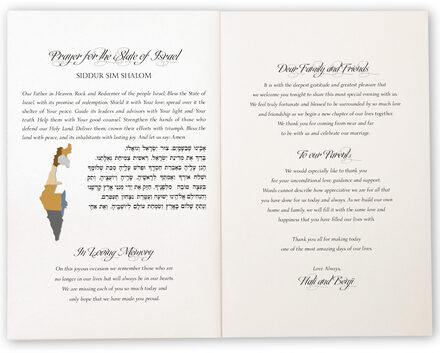 Prayer for the State of Israel
SIDDUR SIM SHALOM
Our Father in Heaven, Rock and Redeemer of the people Israel; Bless the State of
Israel, with its promise of redemption. Shield it with Your love; spread over it the
shelter of Your peace. Guide its leaders and advisors with Your light and Your
truth. Help them with Your good counsel. Strengthen the hands of those who
defend our Holy Land. Deliver them; crown their efforts with triumph. Bless the
land with peace, and its inhabitants with lasting joy. And let us say: Amen.
אבינו שבשמים, צור ישראל וגואלו,
ברך את מדינת ישראל, ראשית צמיחת גאולתנו.
הגן עליה באברת חסדך ופרש עליה סכת שלומך
ושלח אורך ואמתך לראשיה, שריה ויועציה, ותקנם
בעצה טובה מלפניך. חזק את ידי מגני ארץ קדשנו
והנחילם אלהינו ישועה ועטרת נצחון תעטרם.
ונתת שלום בארץ ושמחת עולם ליושביה, ואמר אמן
In Loving Memory
On this joyous occasion we remember those who are
no longer in our lives but will always be in our hearts.
We are missing each of you so much today and
only hope that we have made you proud.
Dear Family and Friends
It is with the deepest gratitude and greatest pleasure that
we welcome you tonight to share this most special evening with us.
We feel truly fortunate and blessed to be surrounded by so much love
and friendship as we begin a new chapter of our lives together.
We thank you for coming from near and far
to be with us and celebrate our marriage.
To our Parents
We would especially like to thank you
for your unconditional love, guidance and support.
Words cannot describe how appreciative we are for all that
you have done for us today and always. As we build our own
home and family, we will fill it with the same love and
happiness that you have filled our lives with.
Thank you all for making today
one of the most amazing days of our lives.
Love Always,
Hali and Benji